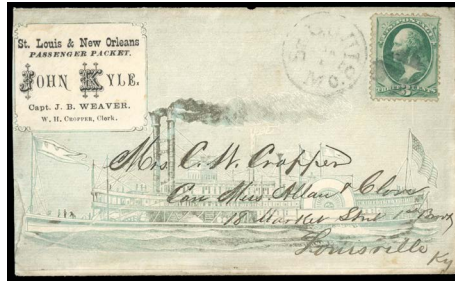 St. Louis & New Orleans
PASSENGER PACKET,
JOHN KYLE.
Capt. J. B. WEAVER.
W. H. CROPPER, Clerk.
MO.
THREE CENTS
Mrs C. W. Cropper
Care Miss Allan & Clove
18 Market Stre 1st
Louisville
Ky